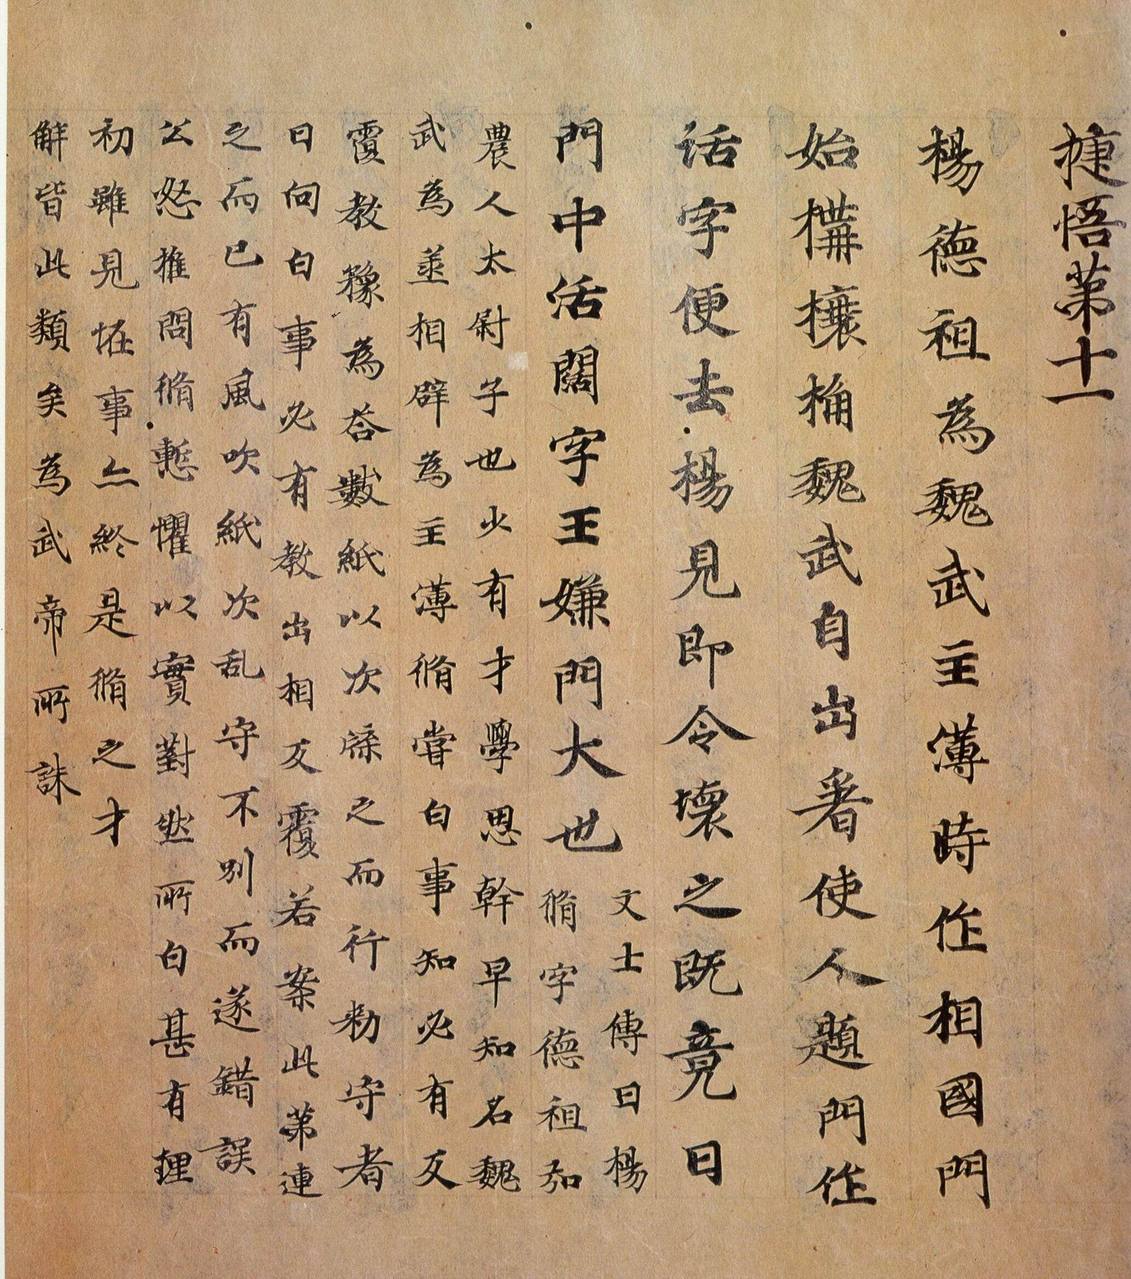 捷悟第十一
楊德祖為魏武主薄時作相國門
始構榱桷魏武自出看使人題門作
活字便去楊見即令壞之既竟曰
門中活闊字王嫌門大也
文士傳曰楊
脩字德祖弘
農人太尉子也少有才學思幹早知名魏
武為丞相辟為主薄脩甞白事知必有反
覆教豫為荅數紙以次牒之而行勑守者
曰向白事必有教出相反覆若案此第連
之而已有風吹紙次乱守不別而遂錯誤
公怒推問脩慙懼以實對然所白甚有理
初雖見怪事亦終是脩之才
解皆此類矣為武帝所誅